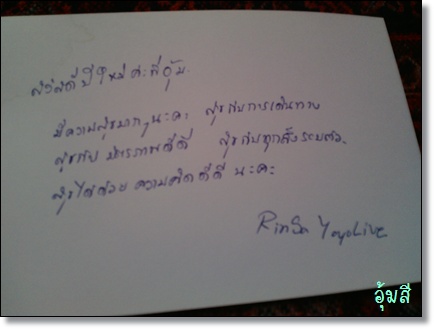 สวัสดีปีใหม่ค่ะพี่อุ้ม
มีความสุขมากๆ นะคะ สุขกับการเดินทาง
สุขกับ มิตรภาพดีดี สุขกับทุกสิ่งรอบตัว
สุขได้ด้วย ความคิดดีดี นะคะ
Rinda Yoyolive
อุ้มสี